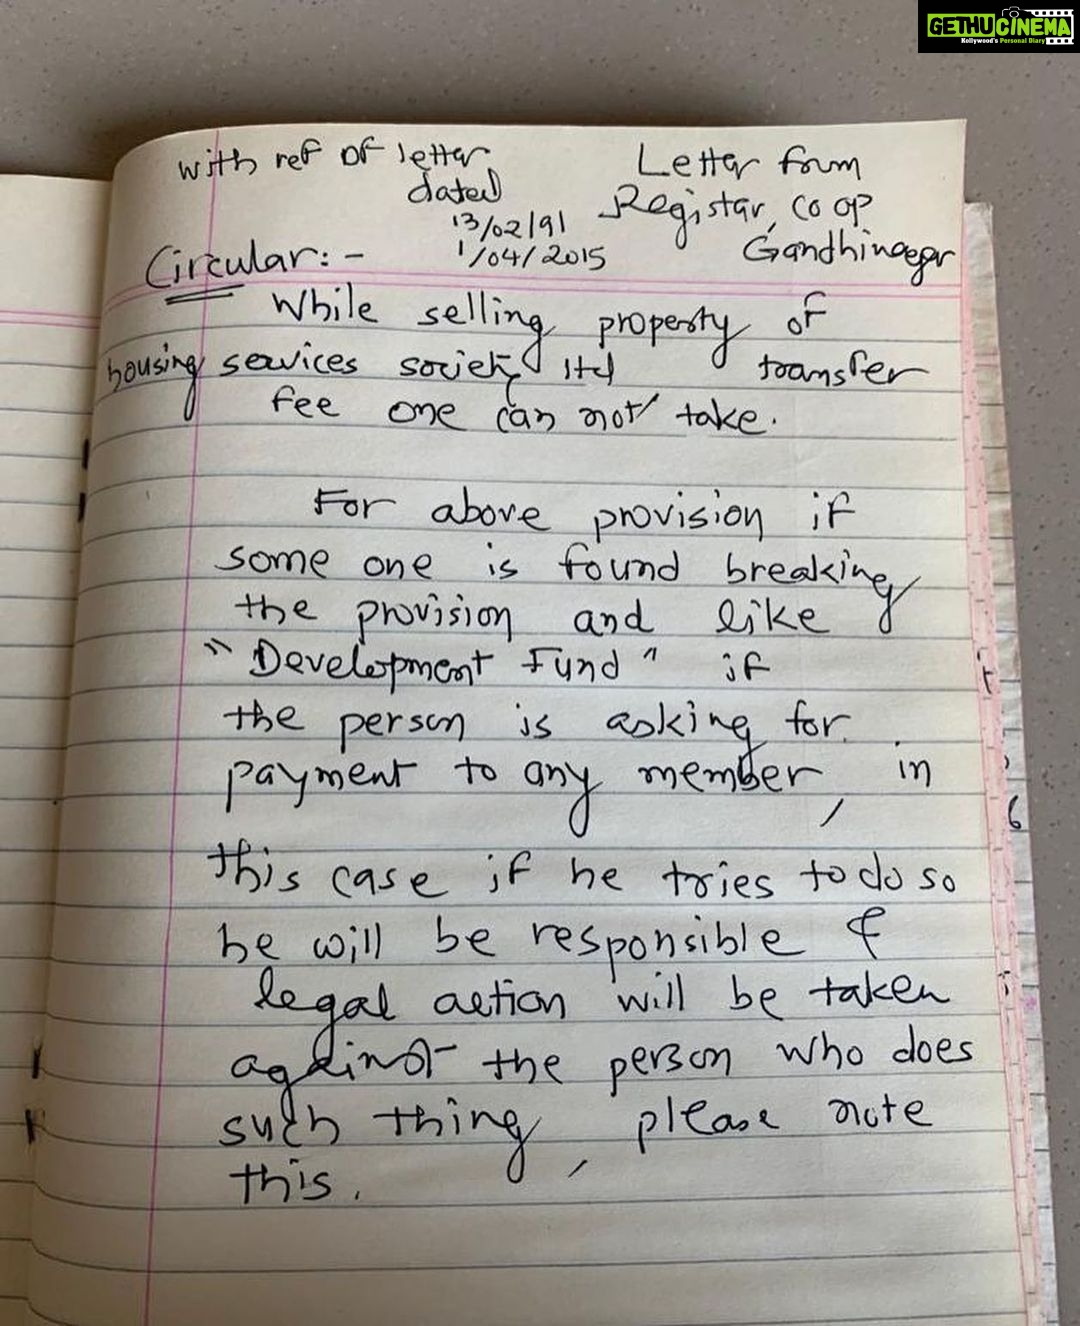 GETHUCINEMA
Kollywood's Personal Diary
with ref of letter
dated
13/02/91
1/04/2015
Letter from
Registar, co op
Gandhinagar
Circular: -
While selling property of
housing services society ltd transfer
fee one can not take.
For above provision if
some one is found breaking
the provision and like
"Development Fund" if
the person is asking for
payment to any member, in
this case if he tries to do so
he will be responsible &
legal action will be taken
against the person who does
such thing, please note
this.